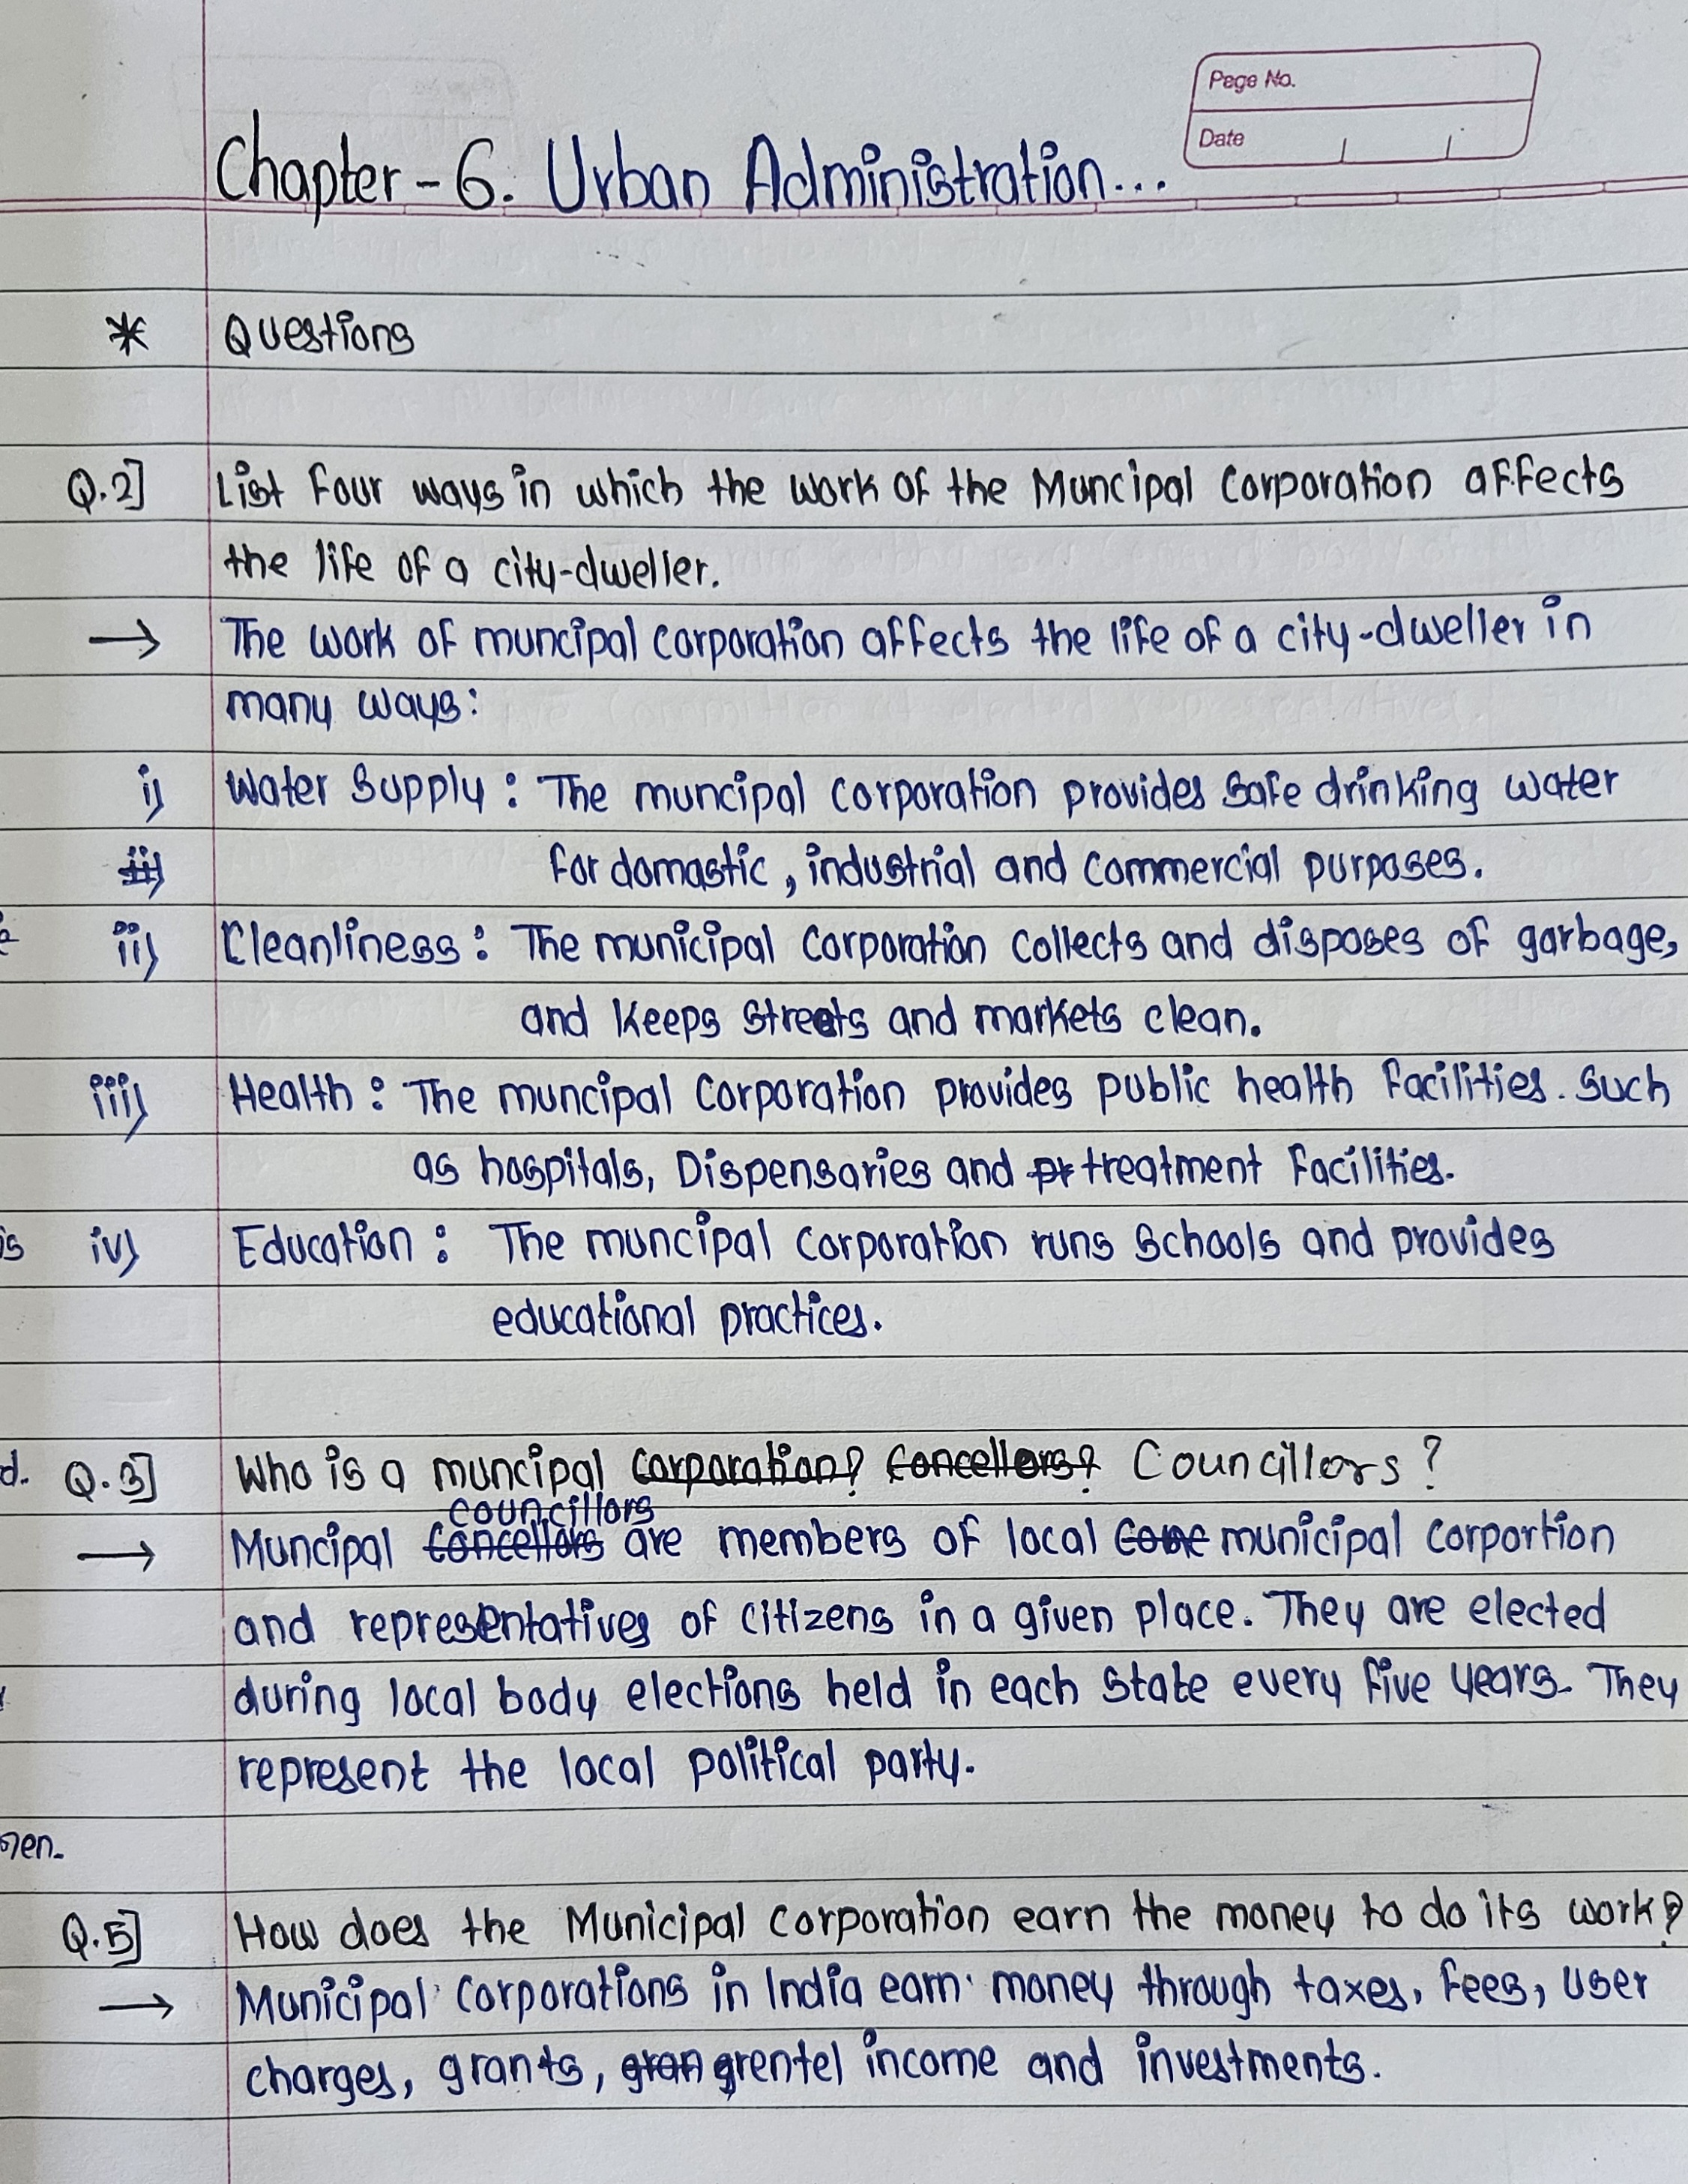 Page No.
Date
Chapter - 6. Urban Administration...
* Questions
Q.2] List four ways in which the work of the Muncipal Corporation affects
the life of a city-dweller.
→ The work of muncipal corporation affects the life of a city-dweller in
many ways:
i) Water Supply : The muncipal corporation provides safe drinking water
ii) for domastic, industrial and commercial purposes.
ii) Cleanliness : The municipal corporation collects and disposes of garbage,
and keeps streets and markets clean.
iii) Health : The muncipal corporation provides public health facilities. Such
as hospitals, Dispensaries and pr treatment facilities.
iv) Education : The muncipal corporation runs schools and provides
educational practices.
Q.3] Who is a muncipal corporation? Concellors? Councillors?
councillors
→ Muncipal Concellors are members of local municipal corportion
and representatives of citizens in a given place. They are elected
during local body elections held in each state every five years. They
represent the local political party.
Q.5] How does the Municipal corporation earn the money to do its work?
→ Municipal corporations in India earn money through taxes, fees, user
charges, grants, gran grentel income and investments.